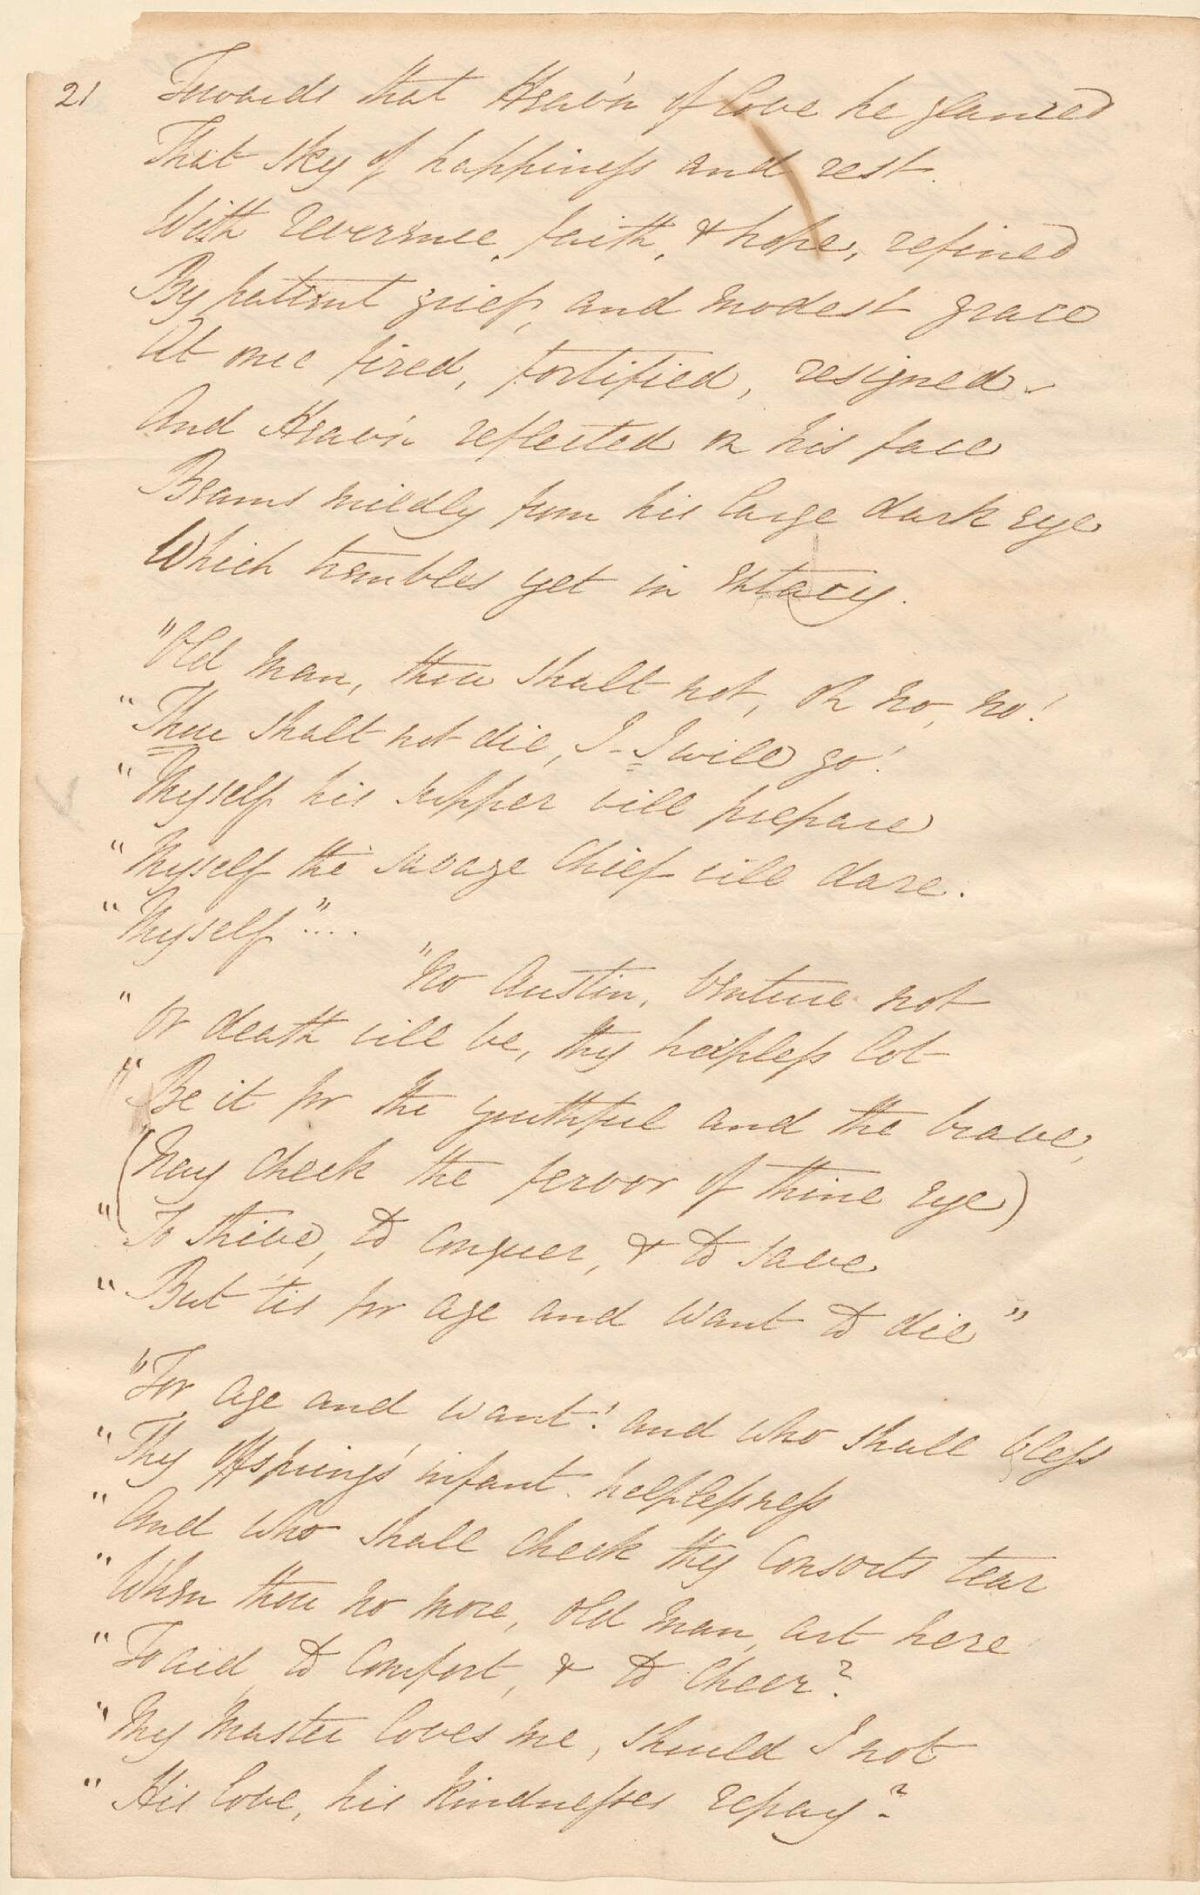 21 Towards that Heav'n of love he glanced
That sky of happiness and rest.
With reverence, faith, & hope, refined
By patient grief, and modest grace
At once fired, fortified, resigned.
And Heav'n reflected in his face
Beams mildly from his large dark eye
Which trembles yet in extacy.
"Old man, thou shalt not, oh no, no!
"Thou shalt not die, I - I will go!
"Myself his supper will prepare
"Myself the savage Chief will dare.
"Myself"....
"No Austin, venture not
"Or death will be, thy hapless lot
"Be it for the youthful and the brave,
"(Nay check the fervor of thine eye)
"To strive, to conquer, & to save
"But 'tis for age and want to die"
"For age and want! and who shall bless
"Thy offspring's infant helplessness
"And who shall check thy Consorts tear
"When thou no more, old man, art here
"To aid, to comfort, & to cheer?
"My Master loves me, should I not
"His love, his kindnesses repay?